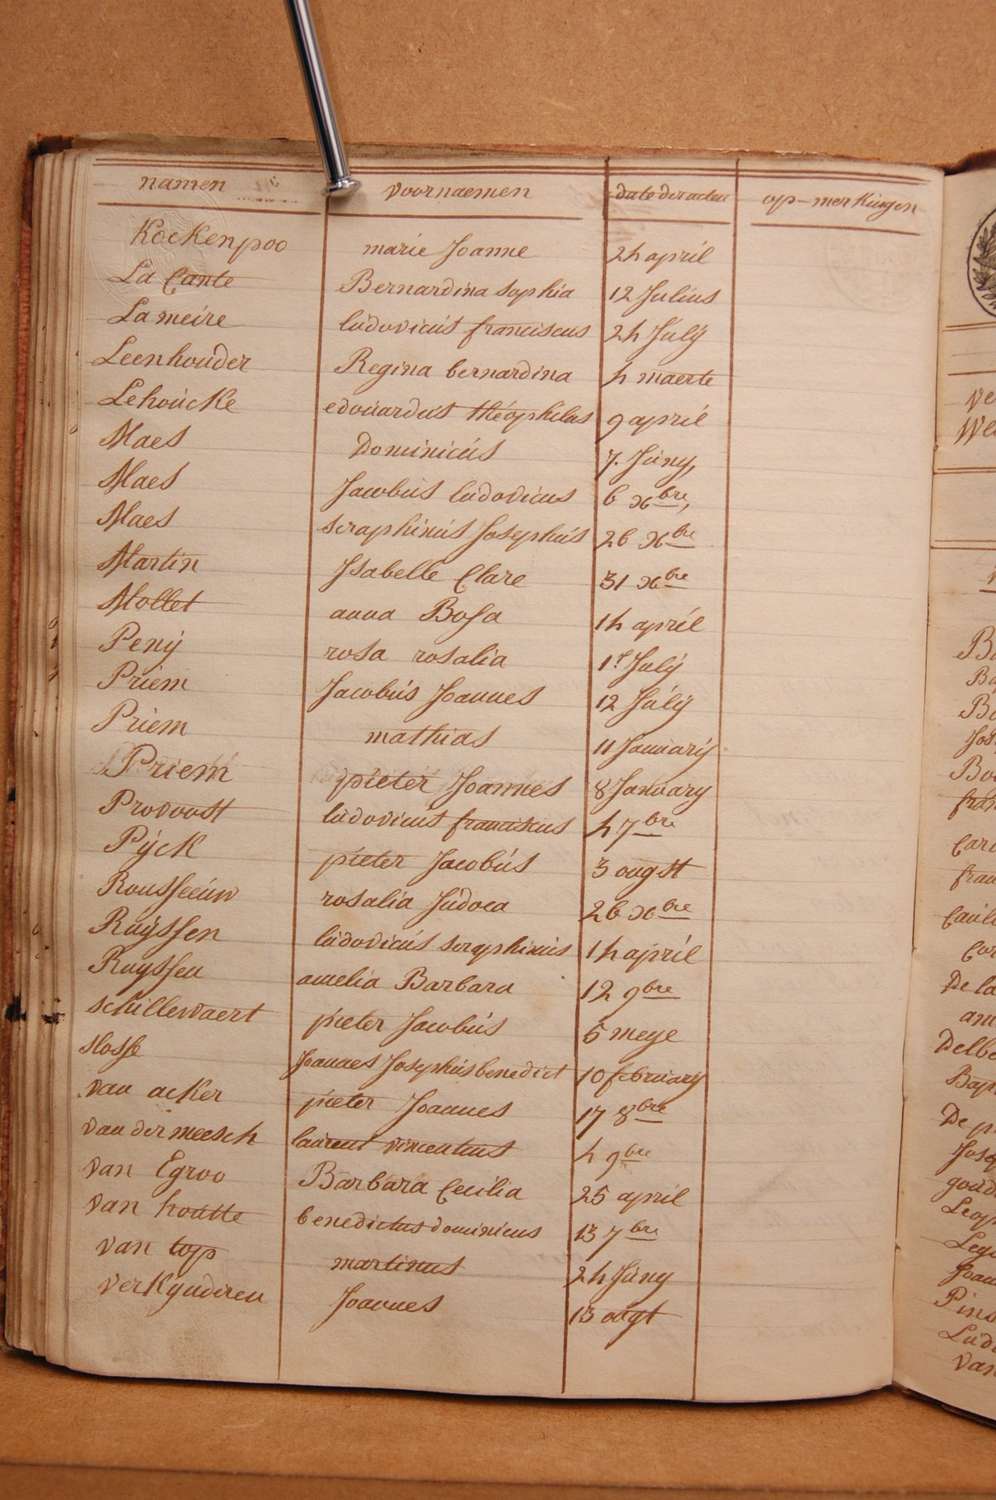 namen voornaemen date der acten op-merkingen
Kockenpoo marie Joanne 24 april
La Cante Bernardina sophia 12 Julius
Lameire ludovicus franciscus 24 July
Leenhouder Regina bernardina 4 maerte
Lehoucke edouardus théophilus 9 april
Maes Dominicús 7 Júny,
Maes Jacobús lúdovicus 6 xbre,
Maes seraphinús Josephús 26 xbre
Martin Jsabelle Clare 31 xbre
Mollet anna Rosa 14 april
Pený rosa rosalia 1r Julÿ
Priem Jacobús Joannes 12 Julÿ
Priem mathias 11 Januarÿ
Priem pieter Joannes 8 January
Provoost ludovicus franciscus 4 7bre
Pÿck pieter Jacobús 3 ougst
Rousseeúw rosalia Judoca 26 xbre
Ruÿssen ludovicús seraphinús 14 april
Ruyssen amelia Barbara 12 9bre
schillewaert pieter Jacobús 5 meye
slosse Joannes Josephús benedict 10 february
van acker pieter Joannes 17 8bre
van der meesch laurent vincentius 4 9bre
van Egroo Barbara Cecilia 25 april
van houtte benedictus dominicus 13 7bre
van top martinus 24 Júny
verkynderen Joannes 13 ougt
Ve
We